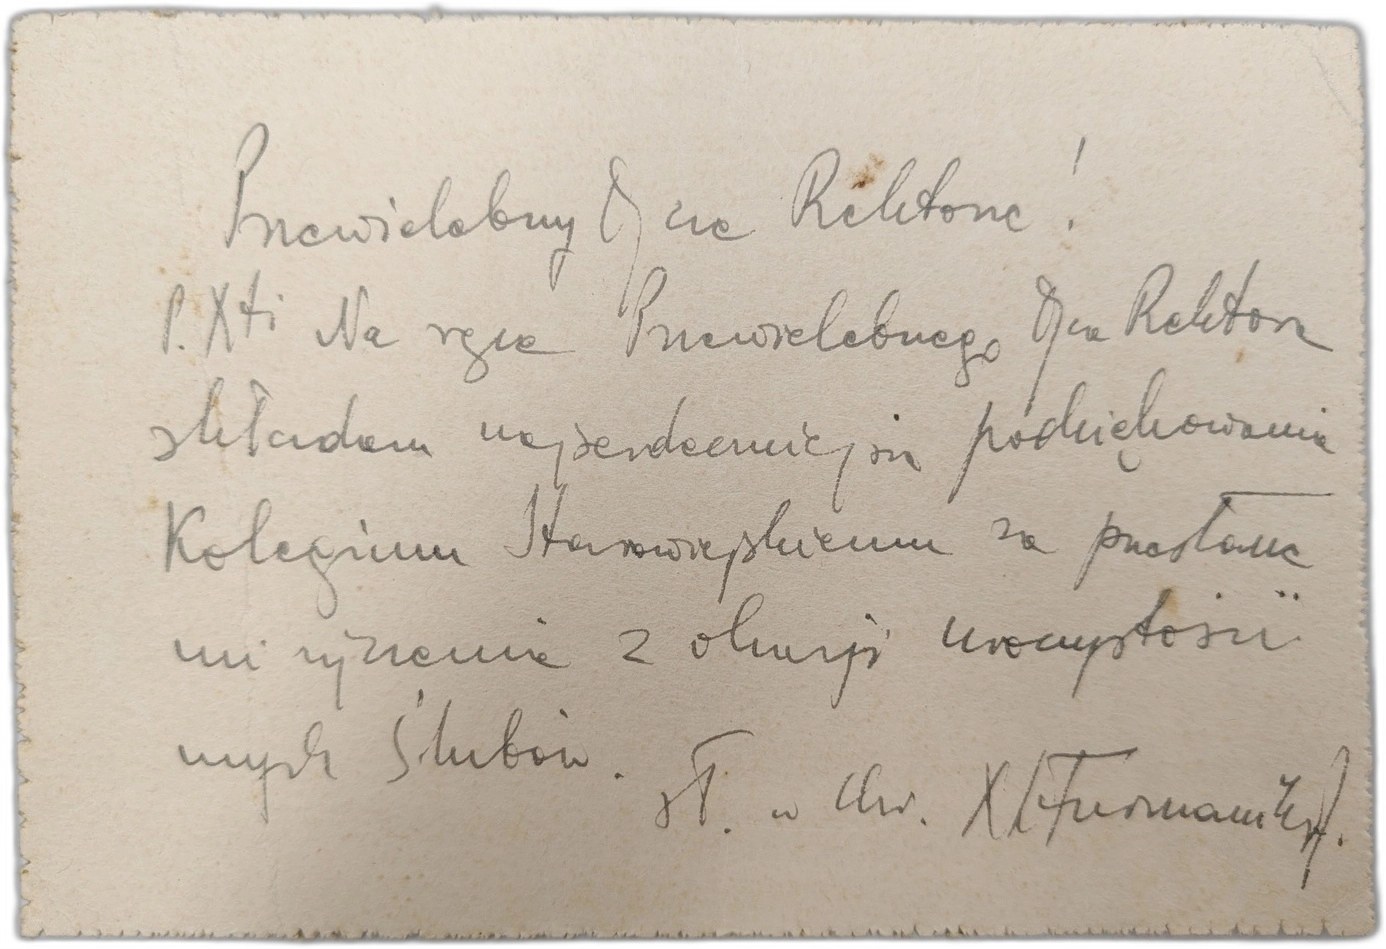 Przewielebny Ojcze Rektorze!
P. Xti Na ręce Przewielebnego Ojca Rektora
składam najserdeczniejsze podziękowania
Kolegium Starowiejskiemu za przesłane
mi życzenia z okazji uroczystości
mych Ślubów. sł. w Chr. X